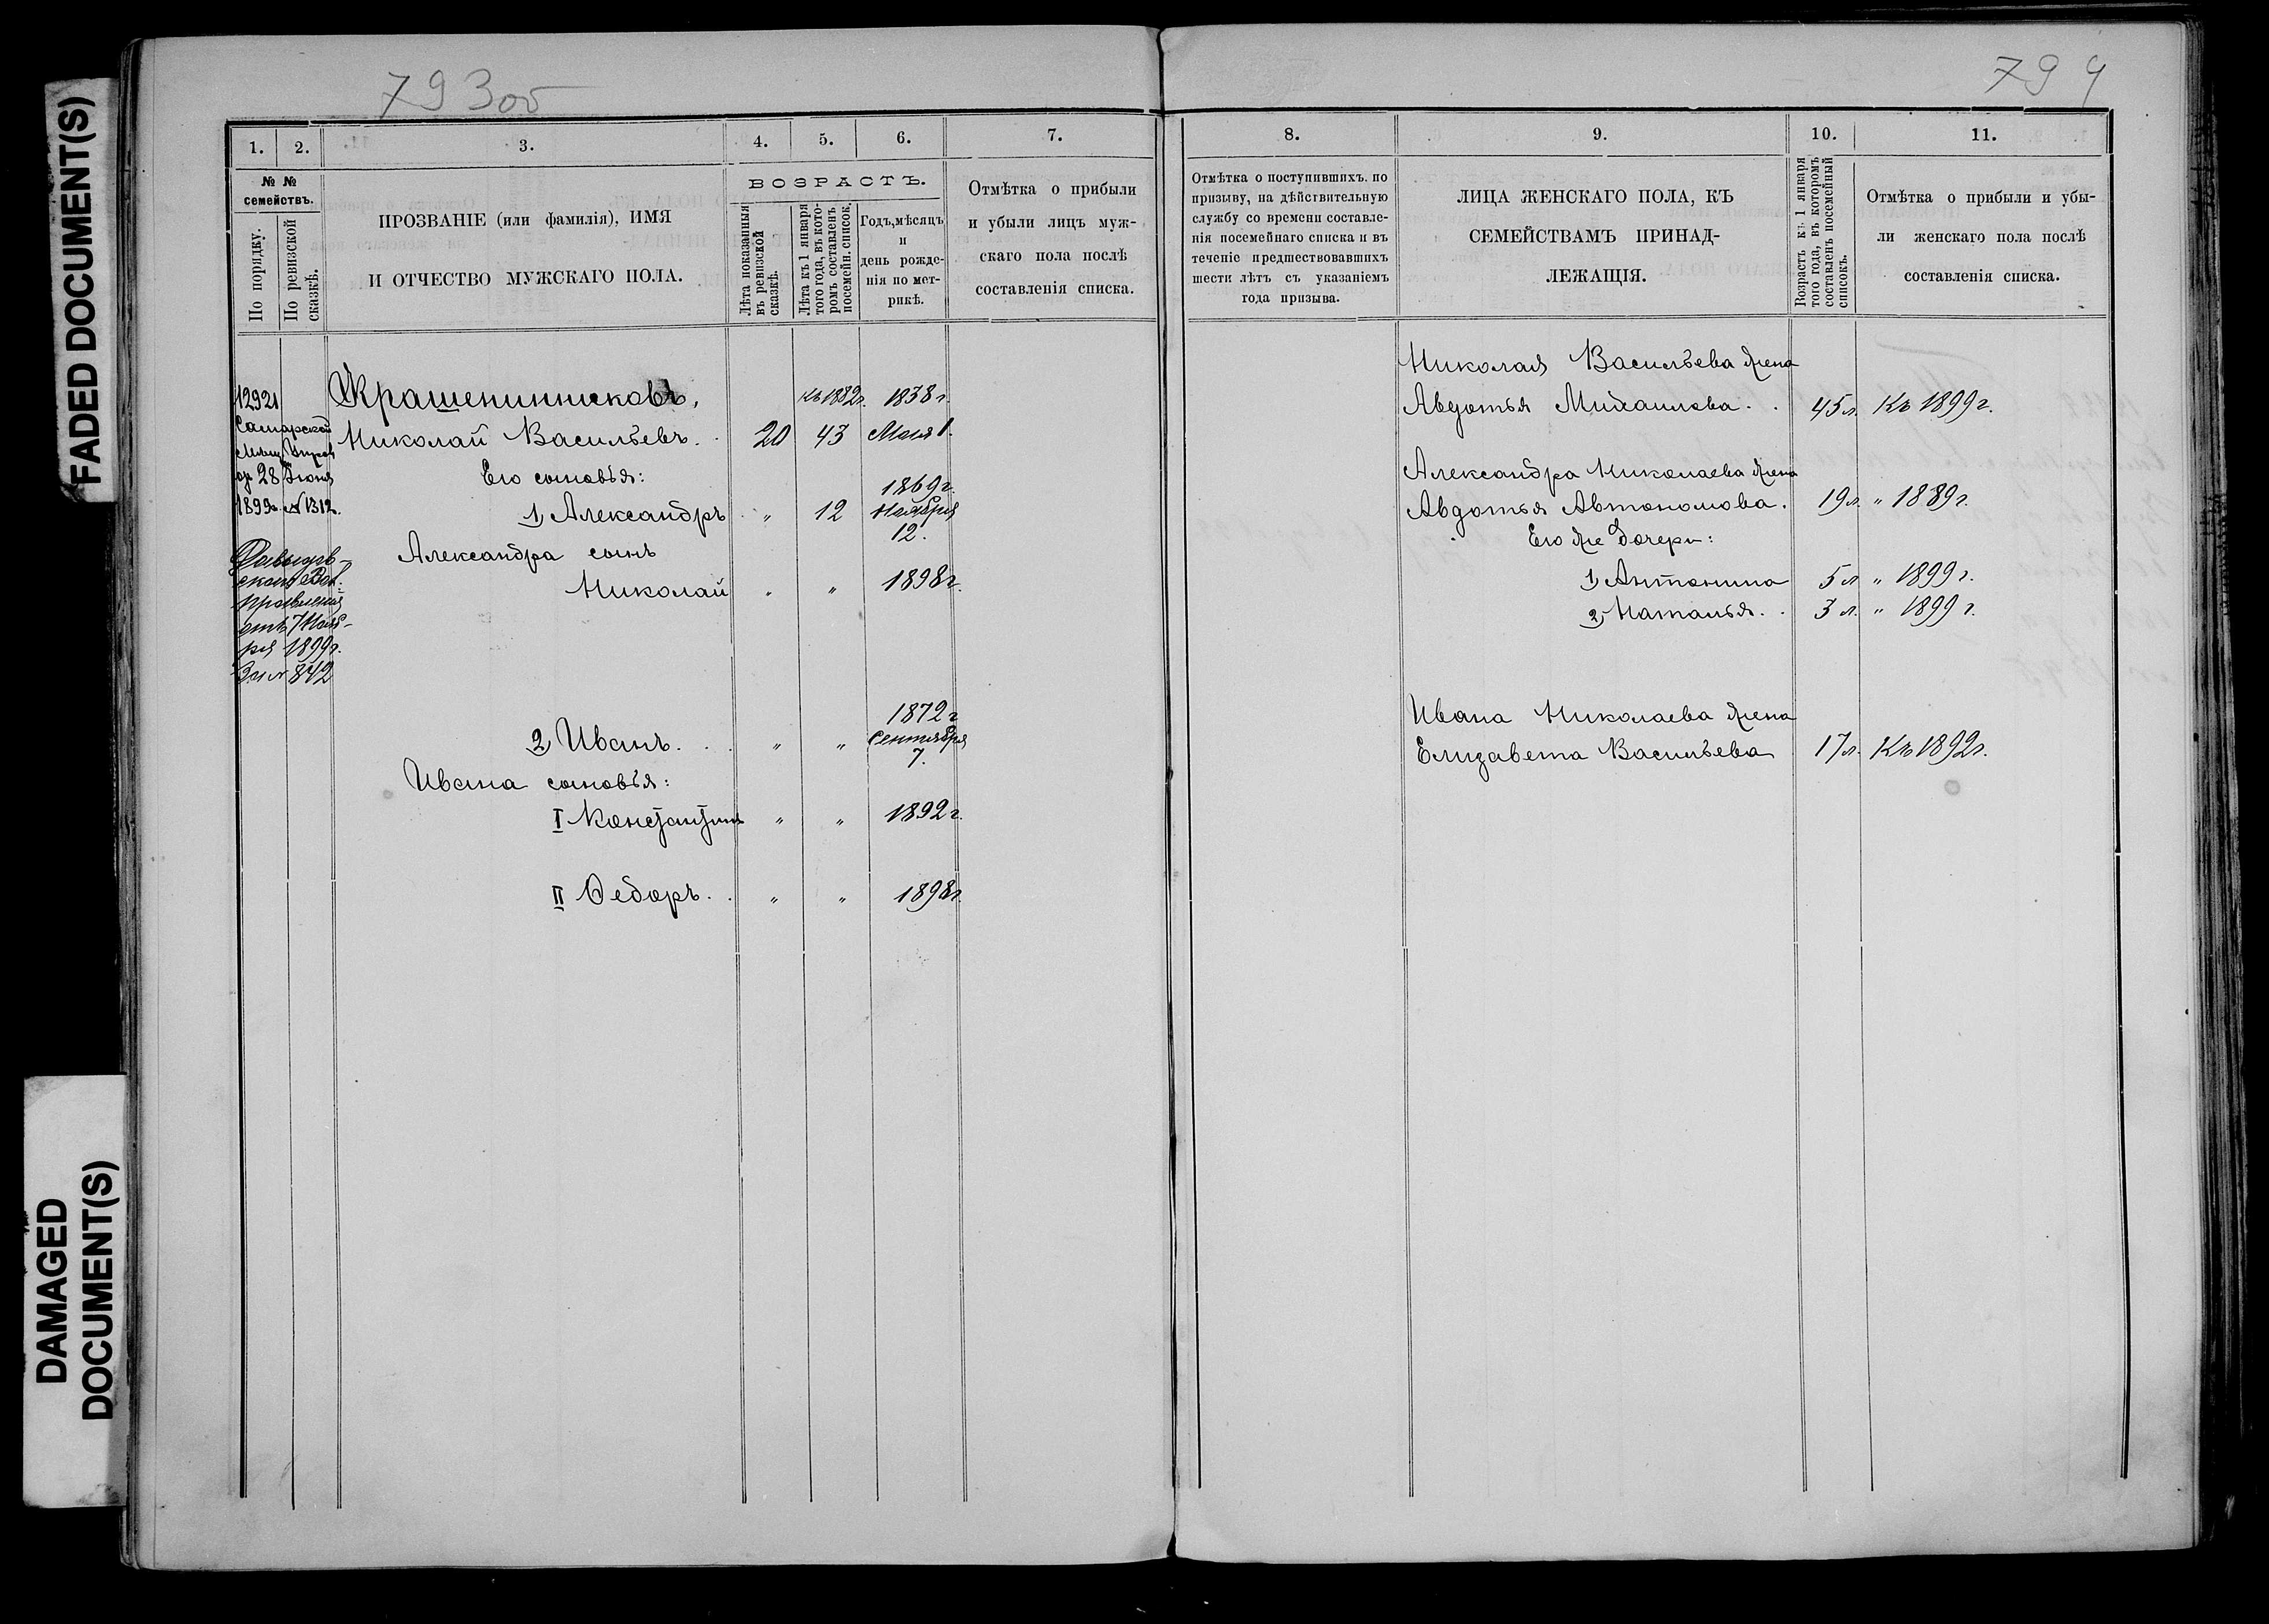 FADED DOCUMENT(S)
DAMAGED
DOCUMENT(S)
793об
1. 2. 3. 4. 5. 6. 7.
№ №
семействъ.
По порядку.
По ревизской
сказкѣ.
ПРОЗВАНІЕ (или фамилія), ИМЯ
И ОТЧЕСТВО МУЖСКАГО ПОЛА.
ВОЗРАСТЪ.
Лѣта показанныя
въ ревизской
сказкѣ.
Лѣта къ 1 января
того года, въ кото-
ромъ составленъ
посемейн. список.
Годъ, мѣсяцъ
и
день рожде-
нія по мет-
рикѣ.
Отмѣтка о прибыли
и убыли лицъ муж-
скаго пола послѣ
составленія списка.
12921
Самарской
Мѣщ. Управ
от 28 Іюня
1899г. № 1312.
Давыдов-
скаго Вол.
правленія
отъ 7 Нояб-
ря 1899г.
За № 842
Крашенинниковъ,
къ 1882г. 1838г.
Николай Васильевъ. 20 43 Мая 1.
Его сыновья:
1) Александръ " 12 1869г.
Ноября
12.
Александра сынъ
Николай " " 1898г.
2) Иванъ. . . " " 1872г
Сентября
7.
Ивана сыновья:
I Константинъ " " 1892г.
II Ѳедоръ. . " " 1898г.
794
8. 9. 10. 11.
Отмѣтка о поступившихъ. по
призыву, на дѣйствительную
службу со времени составле-
нія посемейнаго списка и въ
теченіе предшествовавшихъ
шести лѣтъ съ указаніемъ
года призыва.
ЛИЦА ЖЕНСКАГО ПОЛА, КЪ
СЕМЕЙСТВАМЪ ПРИНАД-
ЛЕЖАЩІЯ.
Возрастъ къ 1 января
того года, въ которомъ
составленъ посемейный
списокъ.
Отмѣтка о прибыли и убы-
ли женскаго пола послѣ
составленія списка.
Николая Васильева жена
Авдотья Михаилова. . 45л. Къ 1899г.
Александра Николаева жена
Авдотья Автономова. 19л. " 1889г.
Его же дочери:
1) Антонина 5л " 1899г.
2) Наталья. . 3л. " 1899г.
Ивана Николаева жена
Елизавета Васильева 17л. Къ 1892г.